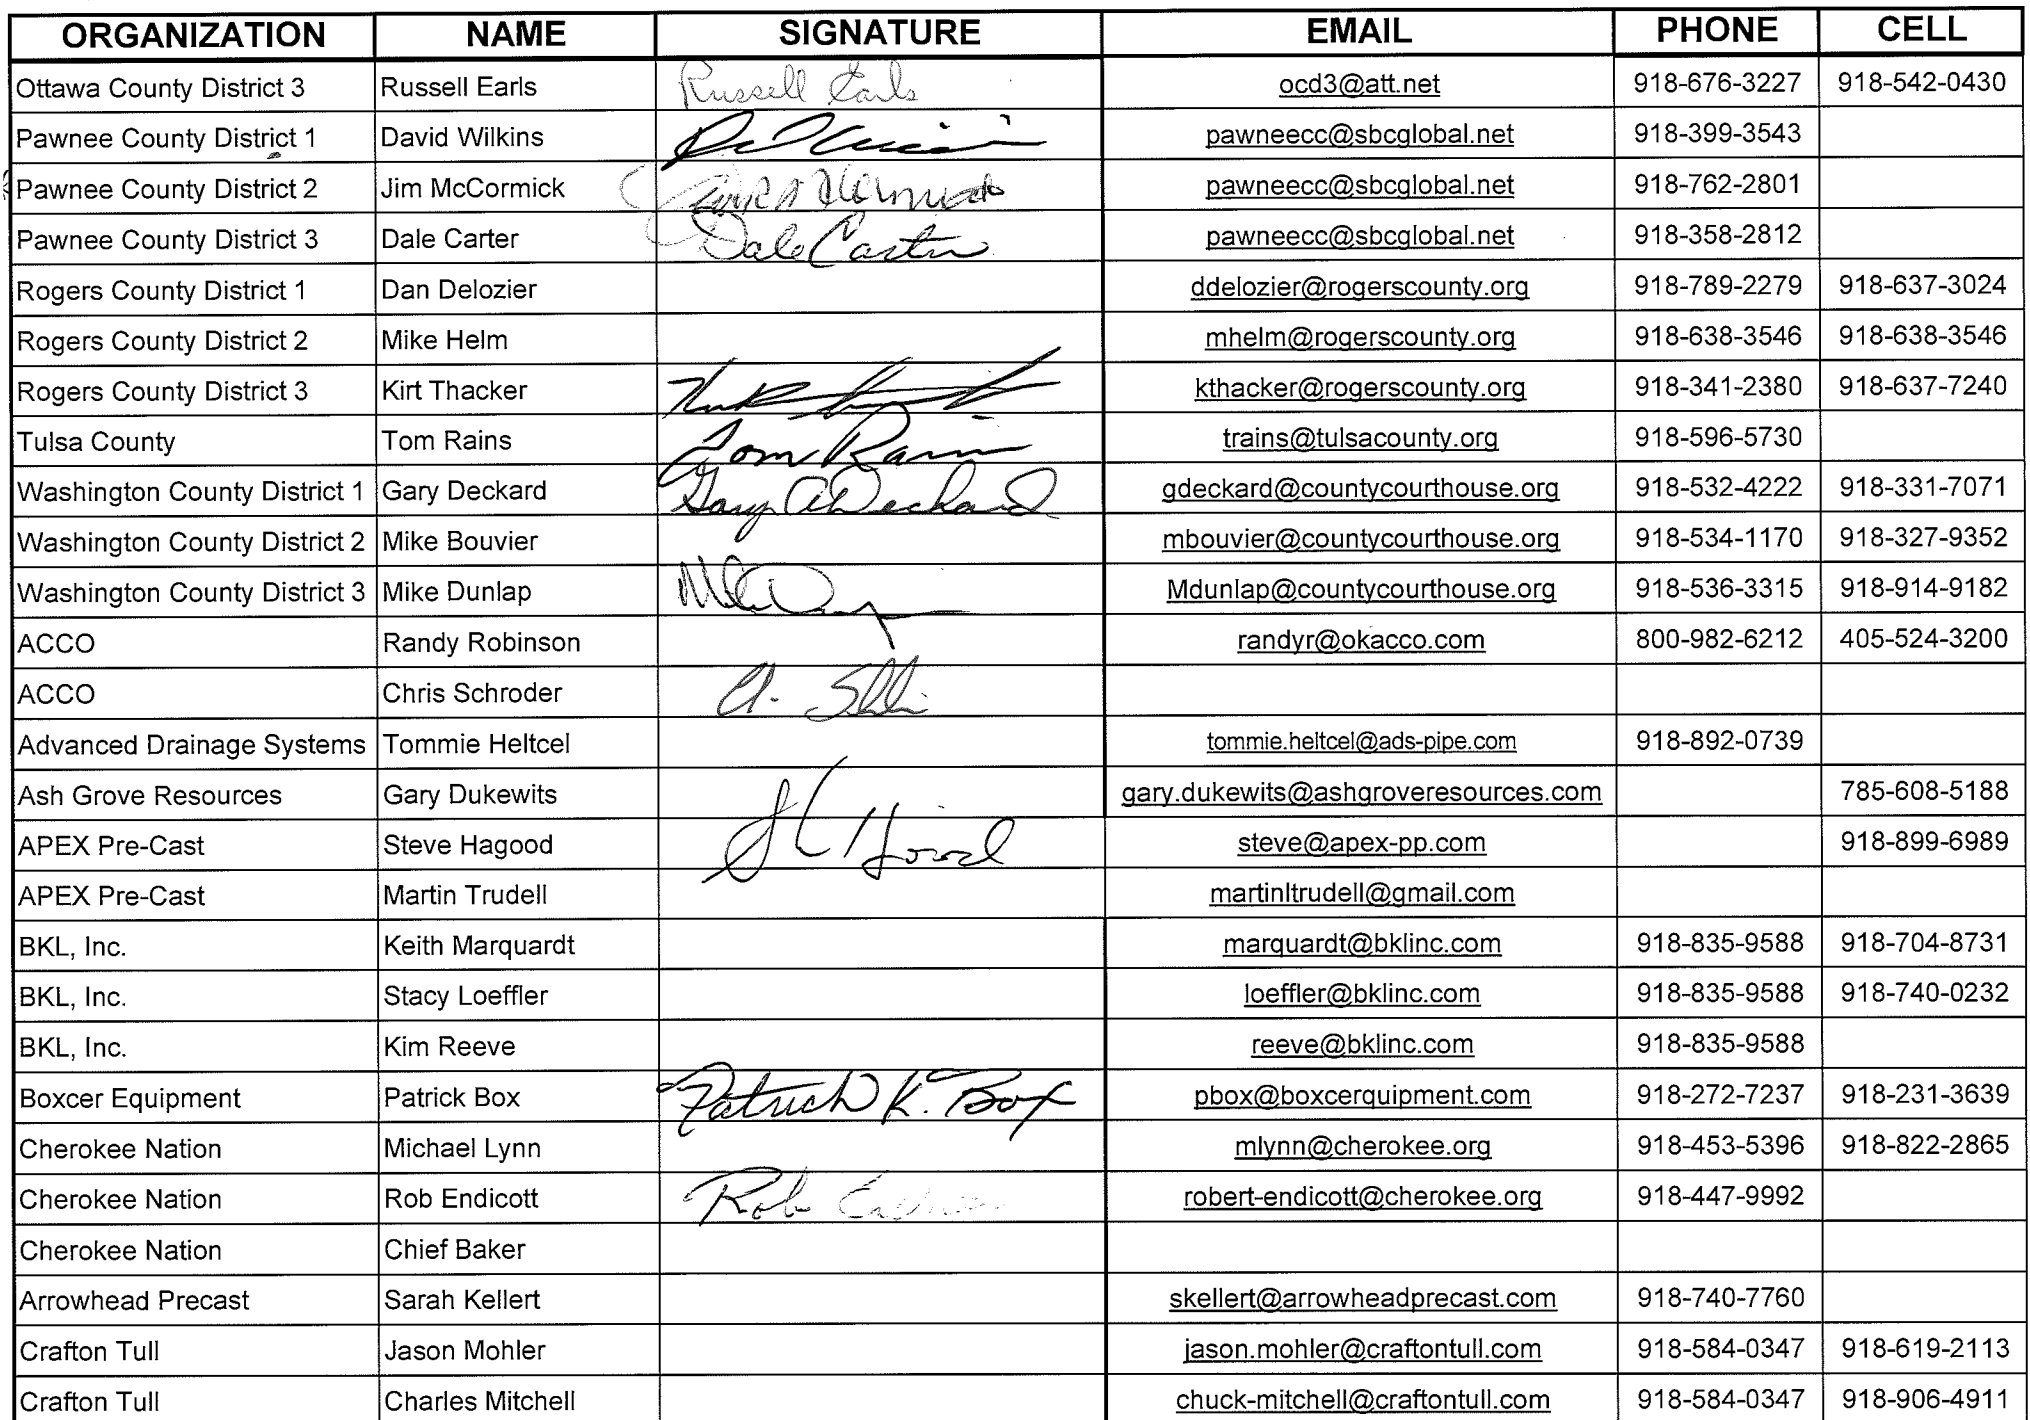 ORGANIZATION NAME SIGNATURE EMAIL PHONE CELL
Ottawa County District 3 Russell Earls Russell Earls ocd3@att.net 918-676-3227 918-542-0430
Pawnee County District 1 David Wilkins pawneecc@sbcglobal.net 918-399-3543
Pawnee County District 2 Jim McCormick pawneecc@sbcglobal.net 918-762-2801
Pawnee County District 3 Dale Carter Dale Carter pawneecc@sbcglobal.net 918-358-2812
Rogers County District 1 Dan Delozier ddelozier@rogerscounty.org 918-789-2279 918-637-3024
Rogers County District 2 Mike Helm mhelm@rogerscounty.org 918-638-3546 918-638-3546
Rogers County District 3 Kirt Thacker kthacker@rogerscounty.org 918-341-2380 918-637-7240
Tulsa County Tom Rains Tom Rains trains@tulsacounty.org 918-596-5730
Washington County District 1 Gary Deckard Gary A Deckard gdeckard@countycourthouse.org 918-532-4222 918-331-7071
Washington County District 2 Mike Bouvier mbouvier@countycourthouse.org 918-534-1170 918-327-9352
Washington County District 3 Mike Dunlap Mdunlap@countycourthouse.org 918-536-3315 918-914-9182
ACCO Randy Robinson randyr@okacco.com 800-982-6212 405-524-3200
ACCO Chris Schroder
Advanced Drainage Systems Tommie Heltcel tommie.heltcel@ads-pipe.com 918-892-0739
Ash Grove Resources Gary Dukewits gary.dukewits@ashgroveresources.com 785-608-5188
APEX Pre-Cast Steve Hagood steve@apex-pp.com 918-899-6989
APEX Pre-Cast Martin Trudell martinltrudell@gmail.com
BKL, Inc. Keith Marquardt marquardt@bklinc.com 918-835-9588 918-704-8731
BKL, Inc. Stacy Loeffler loeffler@bklinc.com 918-835-9588 918-740-0232
BKL, Inc. Kim Reeve reeve@bklinc.com 918-835-9588
Boxcer Equipment Patrick Box Patrick K. Box pbox@boxcerquipment.com 918-272-7237 918-231-3639
Cherokee Nation Michael Lynn mlynn@cherokee.org 918-453-5396 918-822-2865
Cherokee Nation Rob Endicott Rob robert-endicott@cherokee.org 918-447-9992
Cherokee Nation Chief Baker
Arrowhead Precast Sarah Kellert skellert@arrowheadprecast.com 918-740-7760
Crafton Tull Jason Mohler jason.mohler@craftontull.com 918-584-0347 918-619-2113
Crafton Tull Charles Mitchell chuck-mitchell@craftontull.com 918-584-0347 918-906-4911